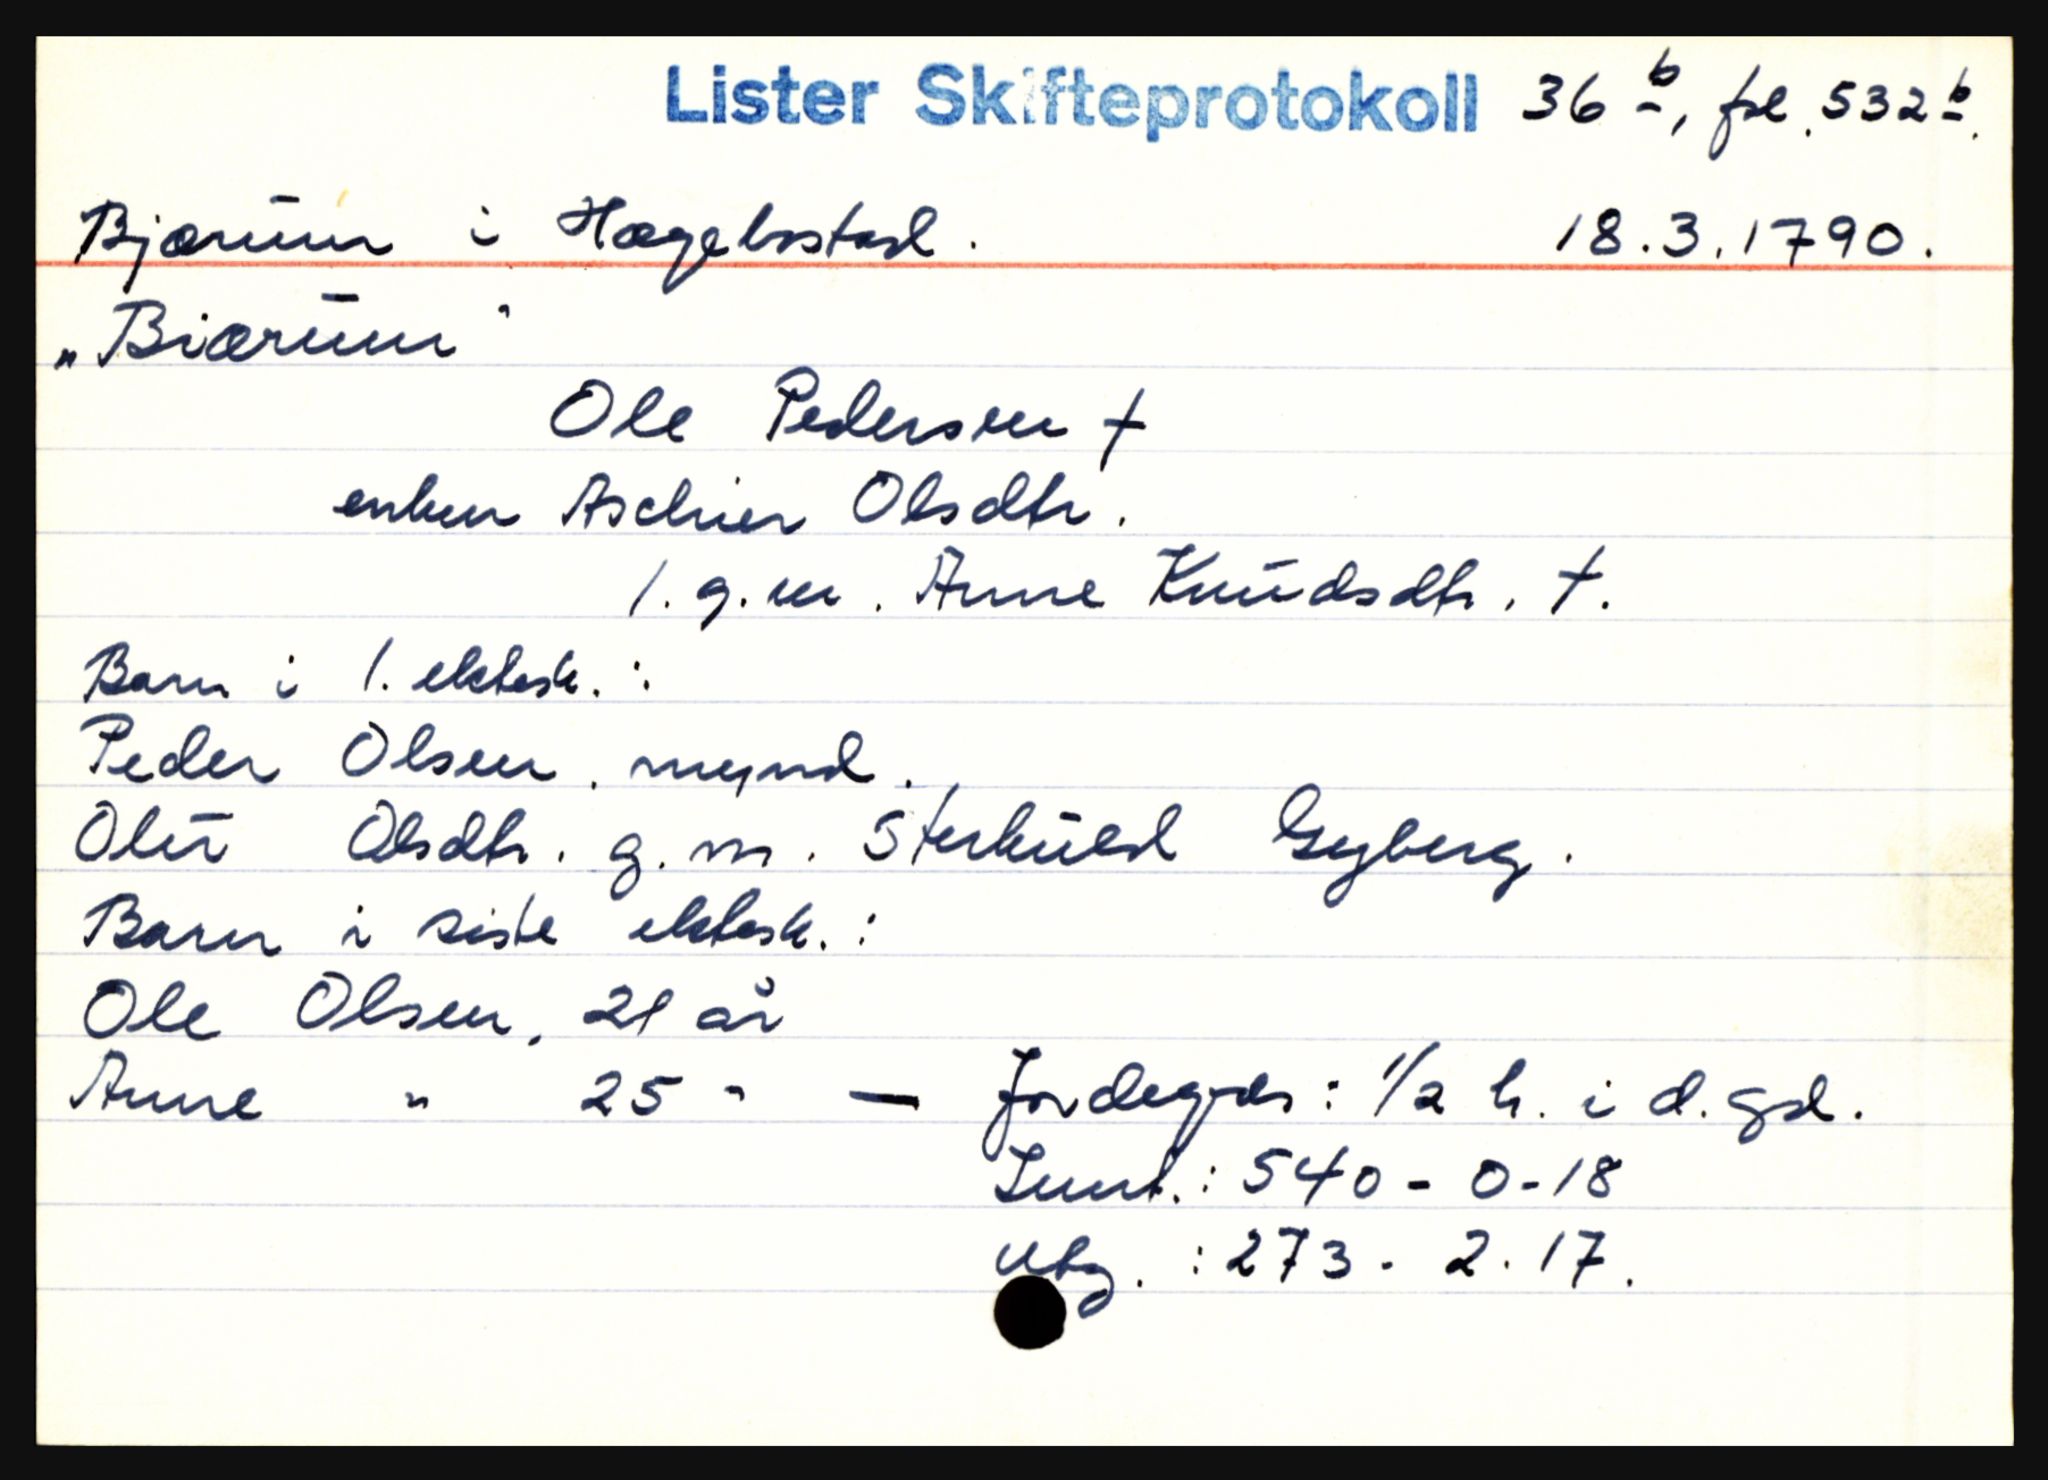 Lister Skifteprotokoll 36 b, fol. 532 b.
Bjærum i Hægebostad. 18.3.1790.
„Biærum"
Ole Pedersen †
enken Aschier Olsdtr.
1. g.m. Anne Knudsdtr. †.
Barn i 1. ektesk. :
Peder Olsen. mynd.
Olu Olsdtr. g.m. Sterkuld Gyberg.
Barn i siste ektesk. :
Ole Olsen, 21 år
Anne " 25 " — Jordegods: 1/2 h. i d. gd.
Innt. : 540 - 0 - 18
Utg. : 273 - 2 - 17.